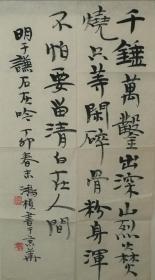 千錘萬鑿出深山烈火焚
燒只等閑碎骨粉身渾
不怕要留清白在人間
明于謙石灰吟丁卯春末鴻書于京華